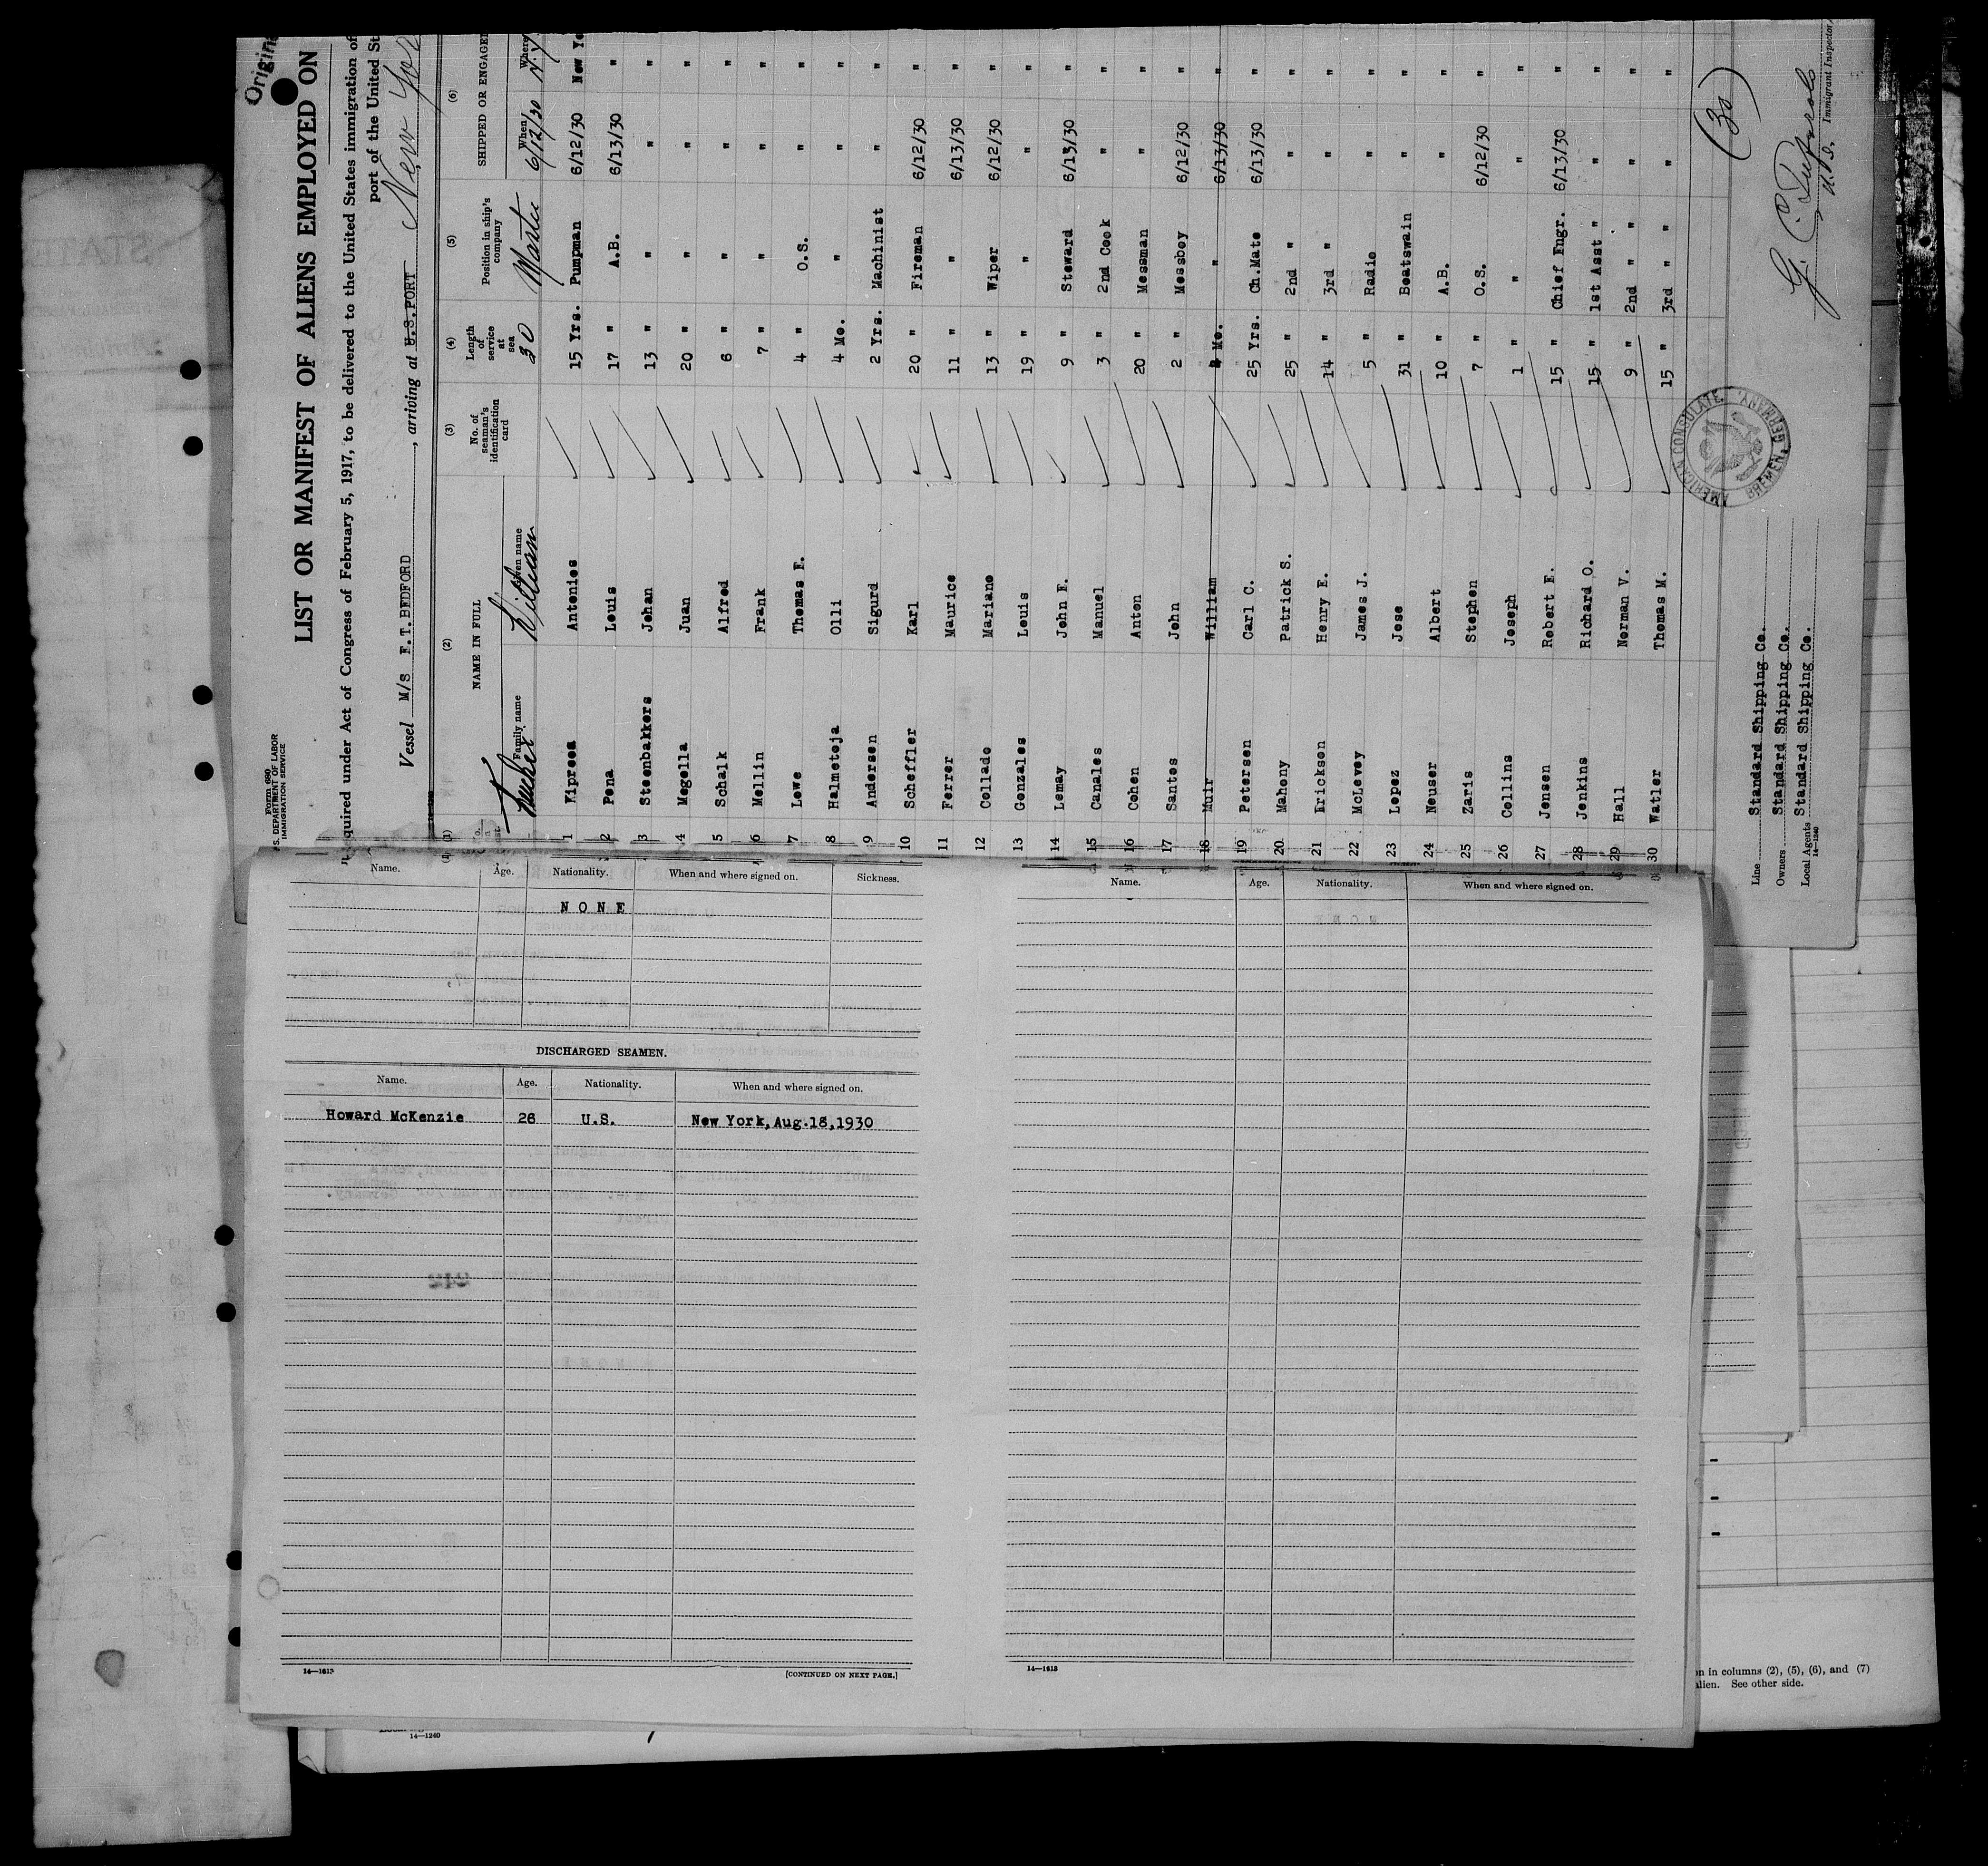 Original
Form 680
U.S. DEPARTMENT OF LABOR
IMMIGRATION SERVICE
LIST OR MANIFEST OF ALIENS EMPLOYED ON
Required under Act of Congress of February 5, 1917, to be delivered to the United States immigration of
port of the United St
Vessel M/S F.T.BEDFORD, arriving at U.S.PORT New York
(1) (2) (3) (4) (5) (6)
NAME IN FULL
Family name Given name
No. of seaman's identification card
Length of service at sea
Position in ship's company
SHIPPED OR ENGAGED
When Where
William 30 Master 6/12/30 N.Y.
1 Kipreos Antonios 15 Yrs. Pumpman 6/12/30 New Yo
2 Pena Louis 17 " A.B. 6/13/30 "
3 Steenbakkers Johan 13 " " " "
4 Mogella Juan 20 " " " "
5 Schalk Alfred 6 " " " "
6 Mellin Frank 7 " " " "
7 Lowe Thomas E. 4 " O.S. " "
8 Halmetoja Olli 4 Mo. " " "
9 Andersen Sigurd 2 Yrs. Machinist " "
10 Scheffler Karl 20 " Fireman 6/12/30 "
11 Ferrer Maurice 11 " " 6/13/30 "
12 Collado Mariano 13 " Wiper 6/12/30 "
13 Gonzales Louis 19 " " " "
14 Lemay John E. 9 " Steward 6/13/30 "
15 Canales Manuel 3 " 2nd Cook " "
16 Cohen Anton 20 " Messman " "
17 Santos John 2 " Messboy 6/12/30 "
18 Muir William Mo. " 6/13/30 "
19 Petersen Carl C. 25 Yrs. Ch.Mate 6/13/30 "
20 Mahony Patrick S. 25 " 2nd " " "
21 Erickson Henry E. 14 " 3rd " " "
22 McLevey James J. 5 " Radio " "
23 Lopez Jose 31 " Boatswain " "
24 Neuser Albert 10 " A.B. " "
25 Zaris Stephen 7 " O.S. 6/12/30 "
26 Collins Joseph 1 " " " "
27 Jensen Robert E. 15 " Chief Engr. 6/13/30 "
28 Jenkins Richard O. 15 " 1st Asst " " "
29 Hall Norman V. 9 " 2nd " " " "
30 Watler Thomas M. 15 " 3rd " " " "
(30)
AMERICAN CONSULATE, BREMEN, GERMANY.
Line Standard Shipping Co.
Owners Standard Shipping Co.
Local Agents Standard Shipping Co.
14—1240
Immigrant Inspector
Name. Age. Nationality. When and where signed on. Sickness.
NONE
DISCHARGED SEAMEN.
Name. Age. Nationality. When and where signed on.
Howard McKenzie 26 U.S. New York, Aug.18,1930
14—1613 [CONTINUED ON NEXT PAGE.]
Name. Age. Nationality. When and where signed on.
14—1613
14—1240
on in columns (2), (5), (6), and (7)
alien. See other side.